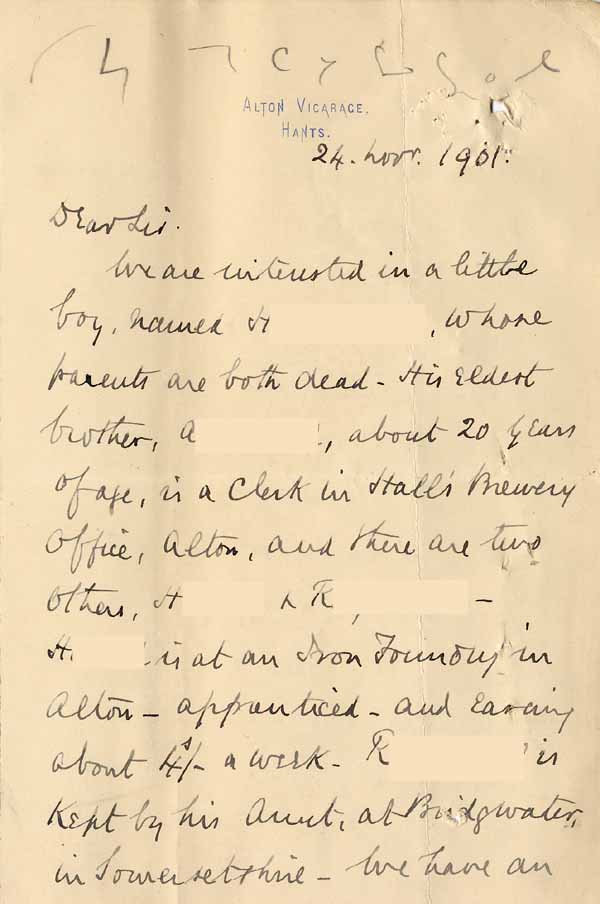 ALTON VICARAGE.
HANTS.
24. Novr. 1901.
Dear Sir.
We are interested in a little
boy, named H , whose
parents are both dead - His Eldest
brother, A , about 20 years
of age, is a Clerk in Hall's Brewery
Office, Alton, and there are two
Others, H & R , -
H. is at an Iron Foundry in
Alton - apprenticed - and Earning
about 4s/- a week - R is
Kept by his Aunt, at Bridgwater,
in Somersetshire - We have an